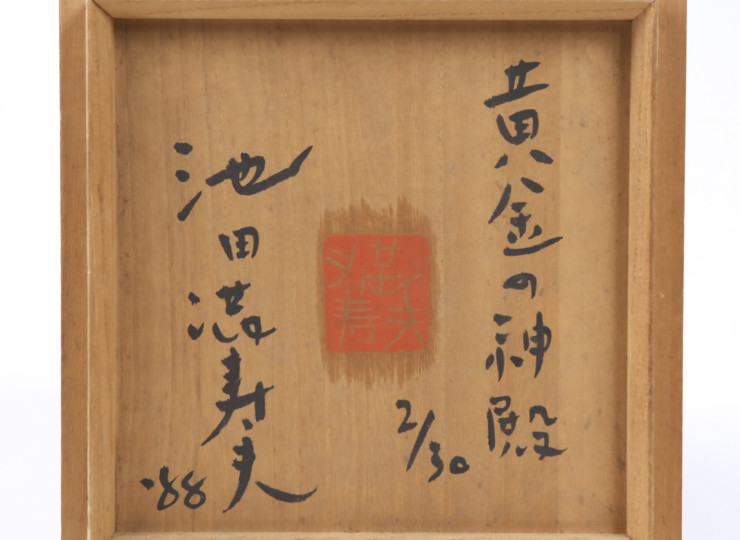 黄金の神殿
2/30
満寿夫
池田満寿夫
'88